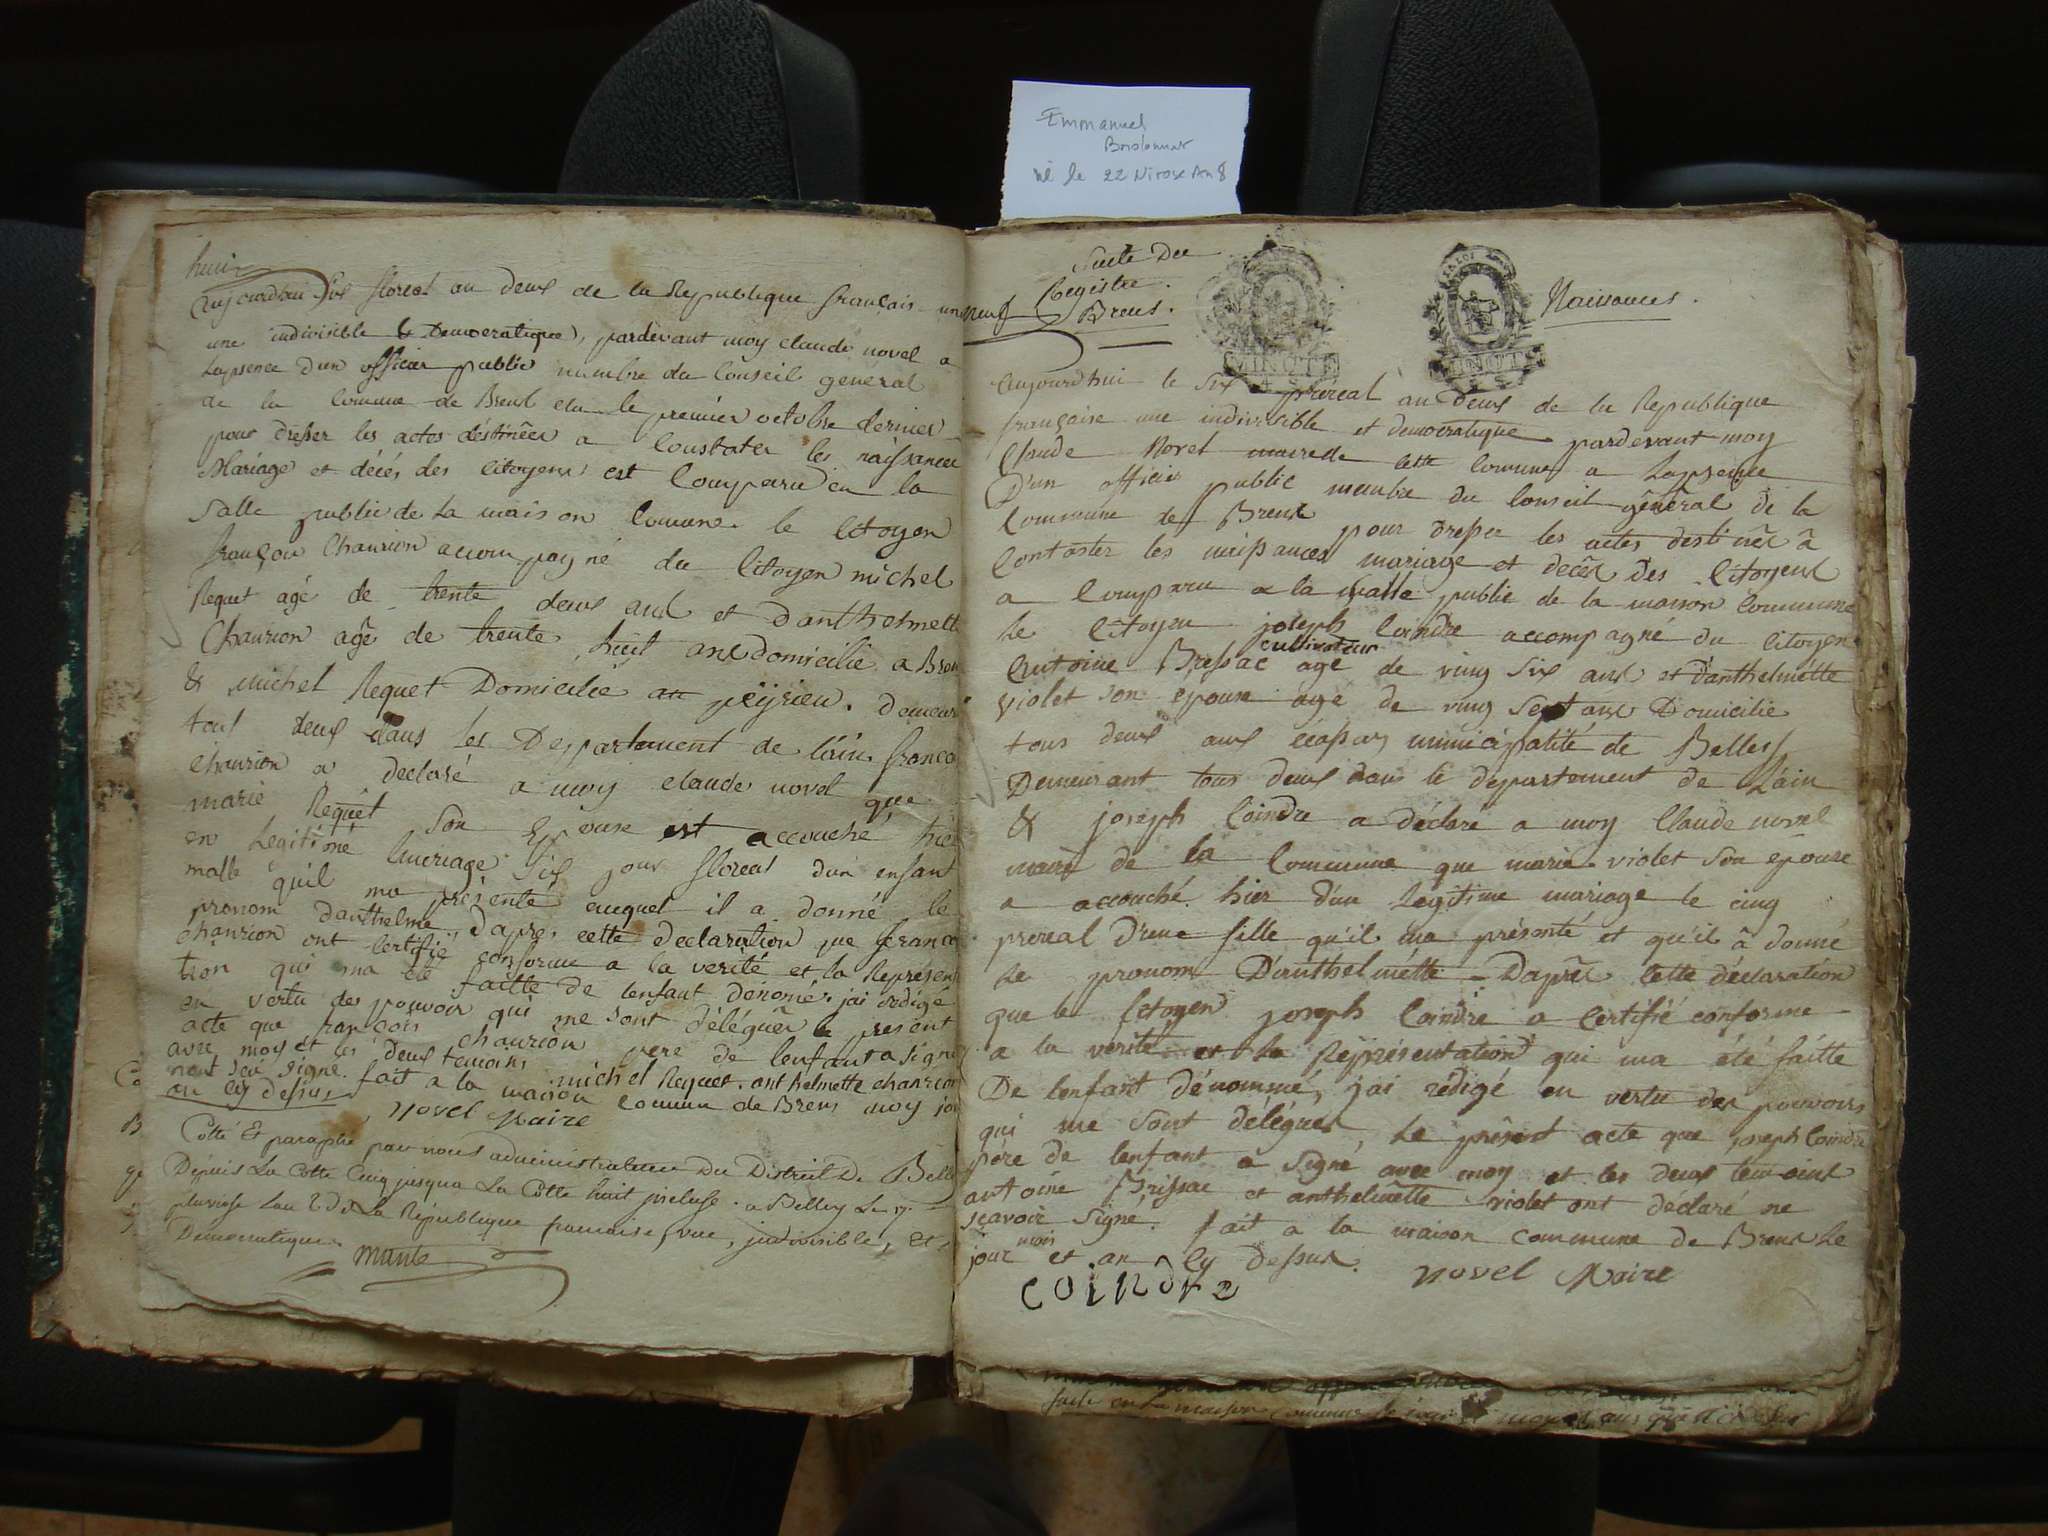 Emmanuel
né le 22 Nivose An 8
huit
aujourdhui six floreal an deux de la Republique français
une indivisible & Democratique, pardevant moy claude novel a
Lapsence d'un officier public membre du Conseil général
de la Commune de Brens elu le premier octobre dernier
pour dresser les actes déstinées a Constater les naissances
Mariage et décés des citoyens est Comparu en la
Salle public de la maison Comune le Citoyen
françois Chanrion accompagné du Citoyen michel
Requet agé de trente deux ans et d'anthelmette
Chanrion agé de trente huit ans domicilié a Bren
& michel Requet Domicilié au peÿrieu. Demeur
tous deux dans les Departement de lain franco
chanrion a declaré a moy claude novel que
marie Requet son Epouse est accouché hier
en Legitimé mariage six jour floreal d'un enfant
malle quil ma présenté auquel il a donné le
pronom danthelme, dapres cette declaration que franco
chanrion ont certifié conforme a la verité et la Représen
tion qui ma été faitte de lenfant dénomé, jai redigé
en vertu des pouvoir qui me sont délégués le present
acte que françois chanrion pere de lenfant a signé
avec moy et les deux temoins michel Requet. anthelmette chanrion
nont seu signé. fait a la maison commun de Brens moy jour
an cy dessus novel Maire
Cotté Et paraphé par nous administrateur Du District De Belley
Depuis La Cotte Cinq jusqua La Cotte huit incluse. a Belley Le 17
pluviose Lan 2 de La République francaise, une, indivisible, Et
Democratique.
Suite Du
neuf Registre.
Brens.
MINUTE
MINUTE
Naissances.
aujourdhui le six prereal an deux de la Republique
française une indivisible et democratique pardevant moy
Claude Novel maire de cette Comune a Lapsence
D'un officier public membre du Conseil général de la
Commune de Brens pour dresser les actes destinés à
Constater les naissances mariage et decés des Citoyens
a Comparu a la salle public de la maison Commune
Le Citoyen joseph Coindre accompagné du Citoyen
cultivateur
Antoine Bressac agé de ving six ans et d'anthelmétte
violet son epouse agé de ving sept ans Domicilié
tous deux aux municipalité de Belley
Demeurant tous deux dans le departement de Lain
& joseph Coindre a déclaré a moy Claude novel
maire de la Commune que marie violet son epouse
a accouché hier d'un Légitime mariage le cinq
prereal D'une fille qu'il ma présenté et qu'il a donné
Le pronom D'anthelmétte - Daprés cette déclaration
que le Citoyen joseph Coindre a certifié conforme
a la verité et la Représentation qui ma été faitte
De lenfant dénommé, jai rédigé en vertu des pouvoirs
qui me sont délégués, Le présent acte que joseph Coindre
père de lenfant a signé avec moy et les deux temoins
antoine Brissac et anthelmétte violet ont déclaré ne
sçavoir signé. fait a la maison commune de Brens le
mois
jour et an cy dessus. novel Maire
coindre
faite en La maison Commune le jour mois et ans que dessus